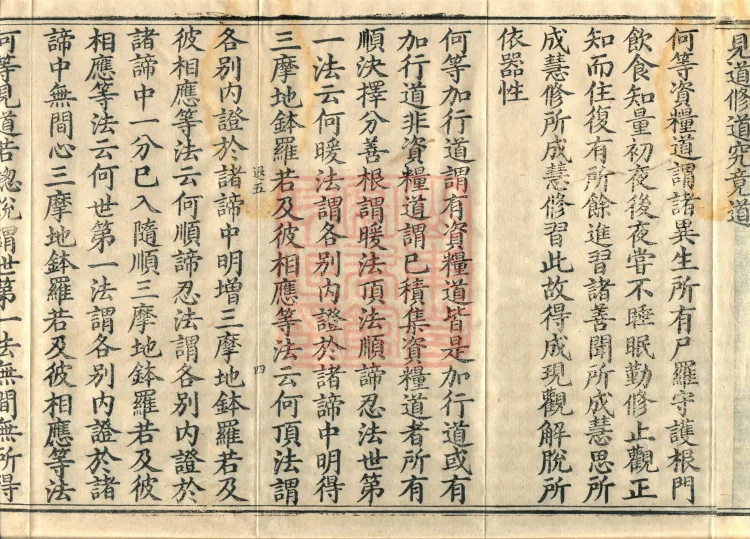 見道修道究竟道
何等資糧道謂諸異生所有尸羅守護根門
飲食知量初夜後夜甞不睡眠勤修止觀正
知而住復有所餘進習諸善聞所成慧思所
成慧修所成慧修習此故得成現觀解脫所
依器性
何等加行道謂有資糧道皆是加行道或有
加行道非資糧道謂已積集資糧道者所有
順決擇分善根謂暖法頂法順諦忍法世第
一法云何暖法謂各別內證於諸諦中明得
三摩地鉢羅若及彼相應等法云何頂法謂
退五
四
各別內證於諸諦中明增三摩地鉢羅若及
彼相應等法云何順諦忍法謂各別內證於
諸諦中一分已入隨順三摩地鉢羅若及彼
相應等法云何世第一法謂各別內證於諸
諦中無間心三摩地鉢羅若及彼相應等法
何等見道若總說謂世第一法無間無所得